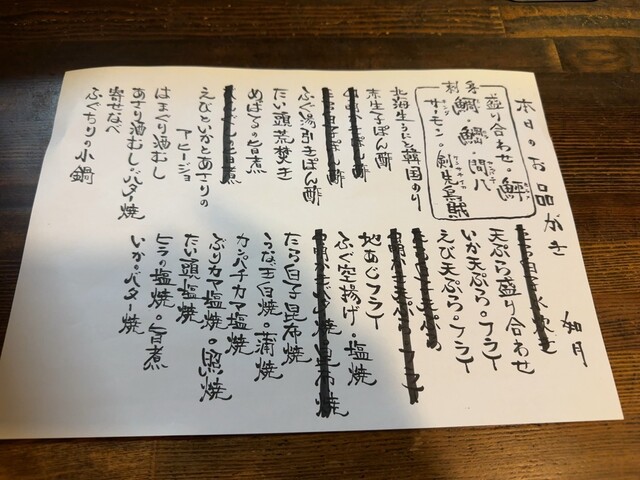 本日のお品がき
如月
刺身
盛り合わせ・鰤
鯛・鯛 間八
サーモン・剣先烏賊
北海生うにと韓国のり
赤生子ぽん酢
ふぐ湯引きぽん酢
たい頭荒焚き
めばるの旨煮
えびといかとあさりの
アヒージョ
はまぐり酒むし
あさり酒むし・バター焼
寄せなべ
ふぐちりの小鍋
天ぷら盛り合わせ
いか天ぷら・フライ
えび天ぷら・フライ
地あじフライ
ふぐ空揚げ・塩焼
たら白子昆布焼
うなぎ白焼・蒲焼
カンパチカマ塩焼
ぶりカマ塩焼・照焼
たい頭塩焼
ヒラの塩焼・旨煮
いか・バター焼